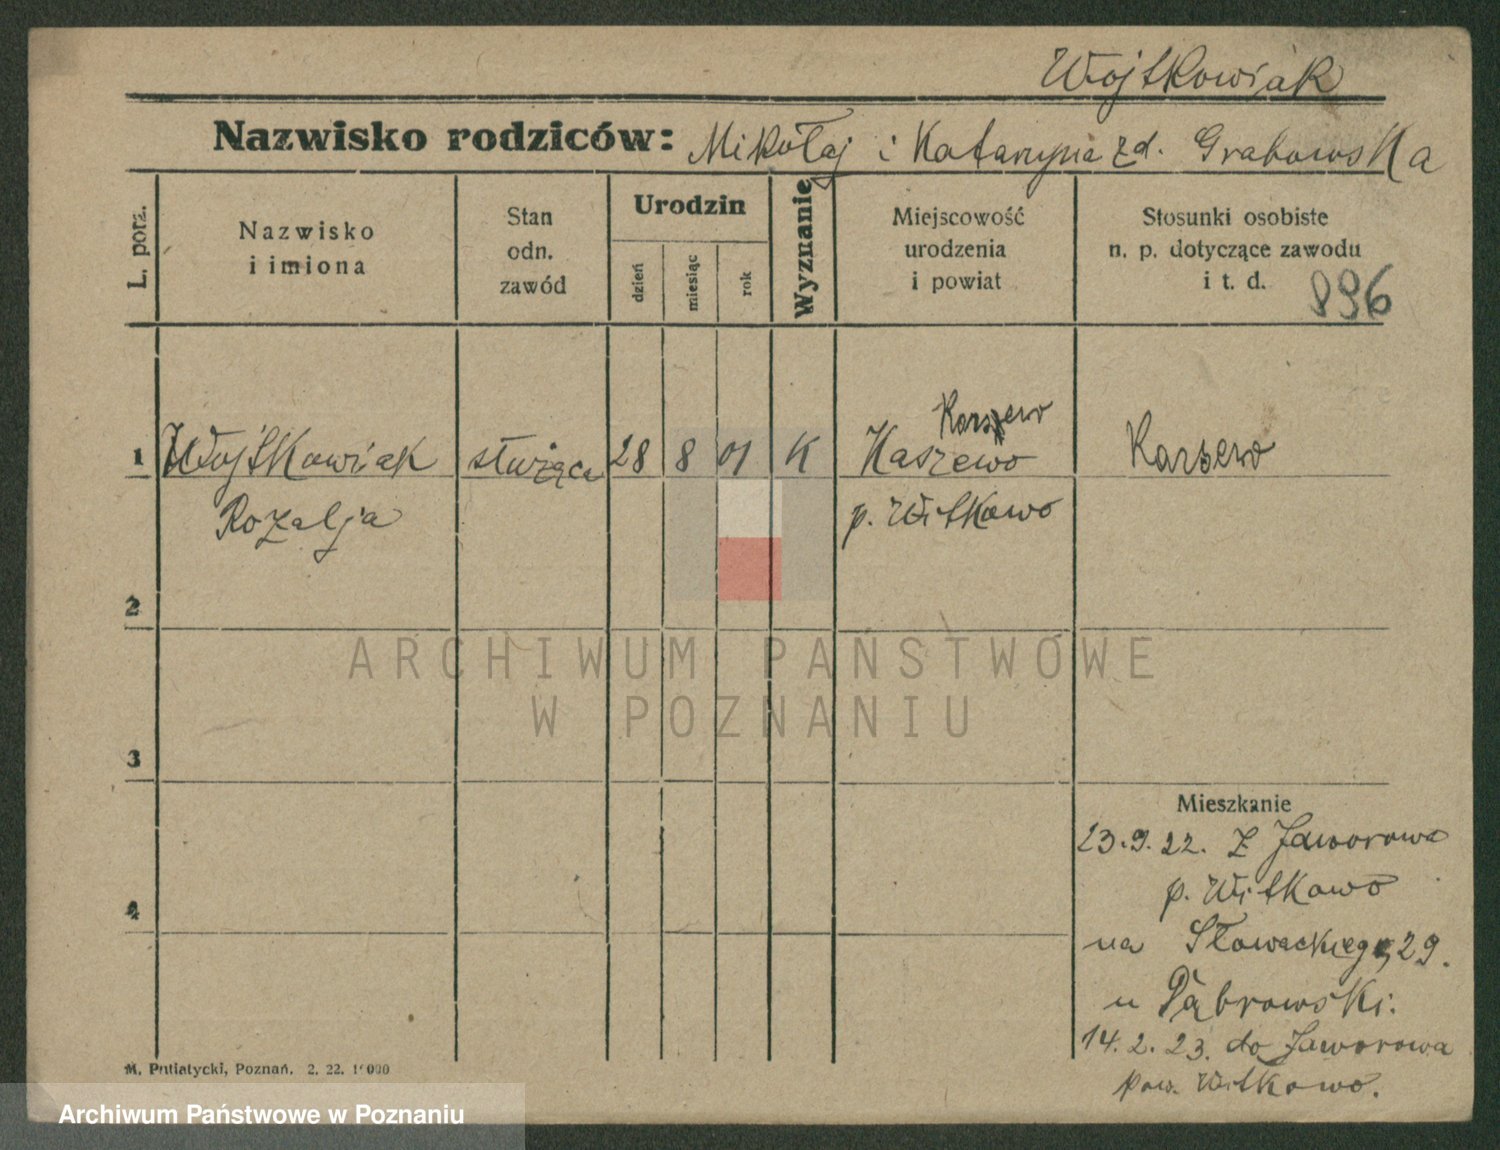 Wojtkowiak
Nazwisko rodziców: Mikołaj i Katarzyna zd. Grabowska
L. porz.
Nazwisko
i imiona
Stan
odn.
zawód
Urodzin
dzień
miesiąc
rok
Wyznanie
Miejscowość
urodzenia
i powiat
Stosunki osobiste
n. p. dotyczące zawodu
i t. d.
896
1
Wojtkowiak
Rozalja
służąca
28
8
01
K
Karsewo
Kaszewo
p. Witkowo
Karsewo
2
3
4
Mieszkanie
23.9.22. z Jaworowa
p. Witkowo
na Słowackiego 29.
u Dąbrowski.
14.2.23. do Jaworowa
pow. Witkowo.
M. Putiatycki, Poznań. 2. 22. 000
ARCHIWUM PAŃSTWOWE
W POZNANIU
Archiwum Państwowe w Poznaniu